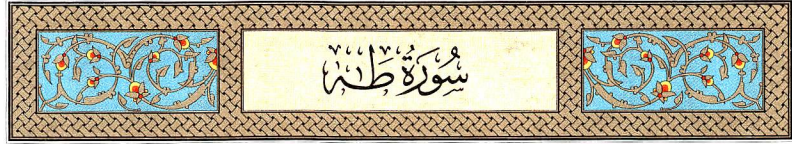 سُورَةُ طَهَ